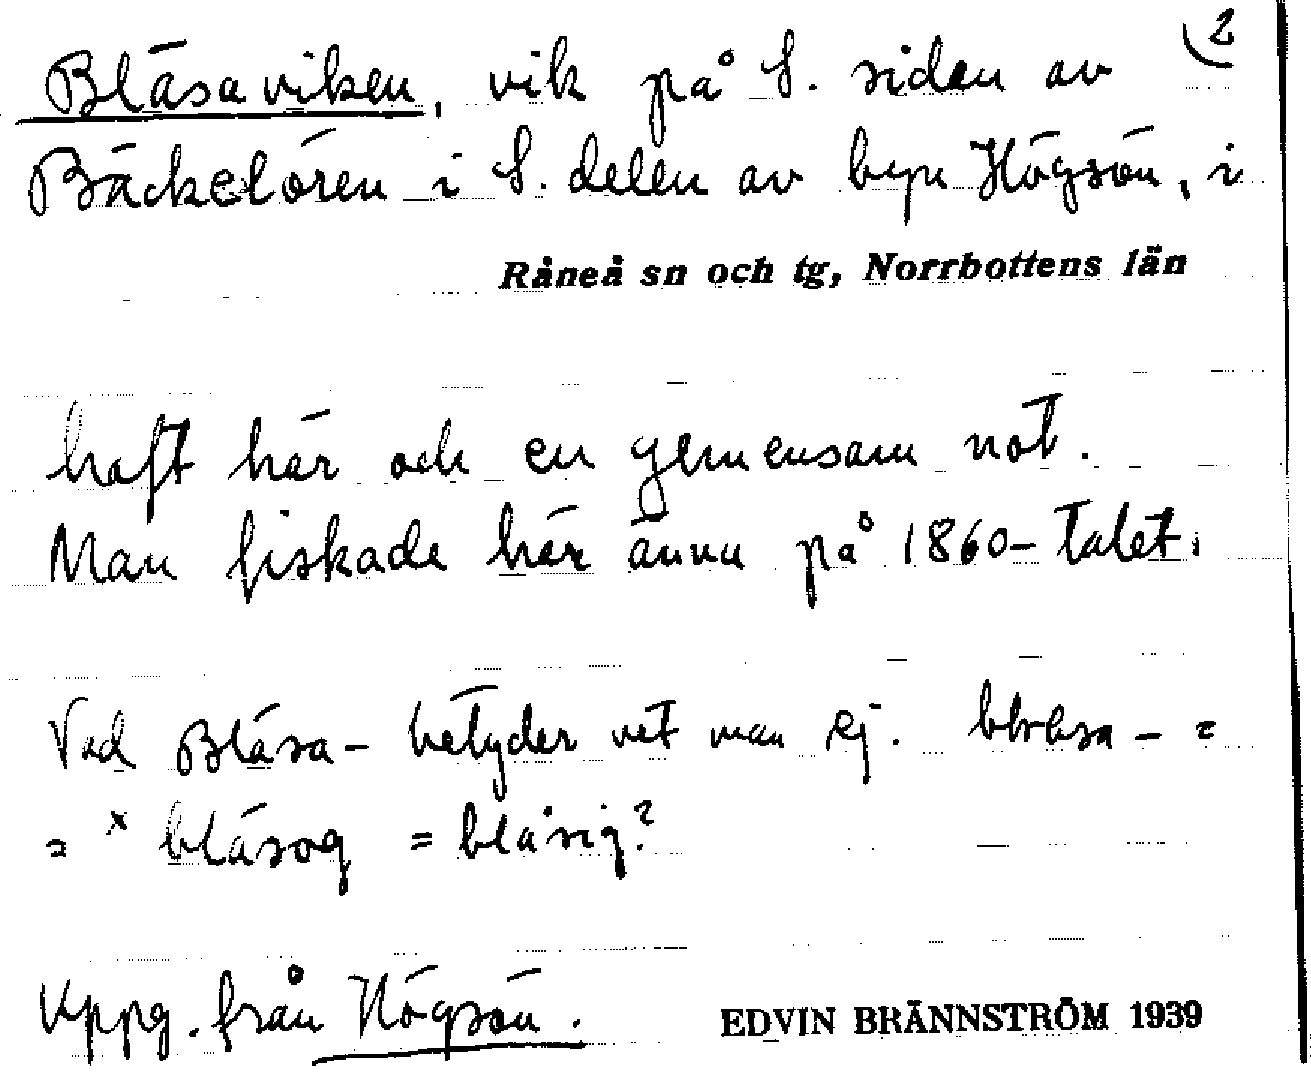 2
Bläsaviken, vik på S. sidan av
Bäckelören i S. delen av byn Högsön, i
Råneå sn och tg, Norrbottens län
haft här och en gemensam not.
Man fiskade här ännu på 1860-talet.
Vad Bläsa- betyder vet man ej. =
= x bläsog = blåsig?
Uppg. från Högsön.
EDVIN BRÄNNSTRÖM 1939